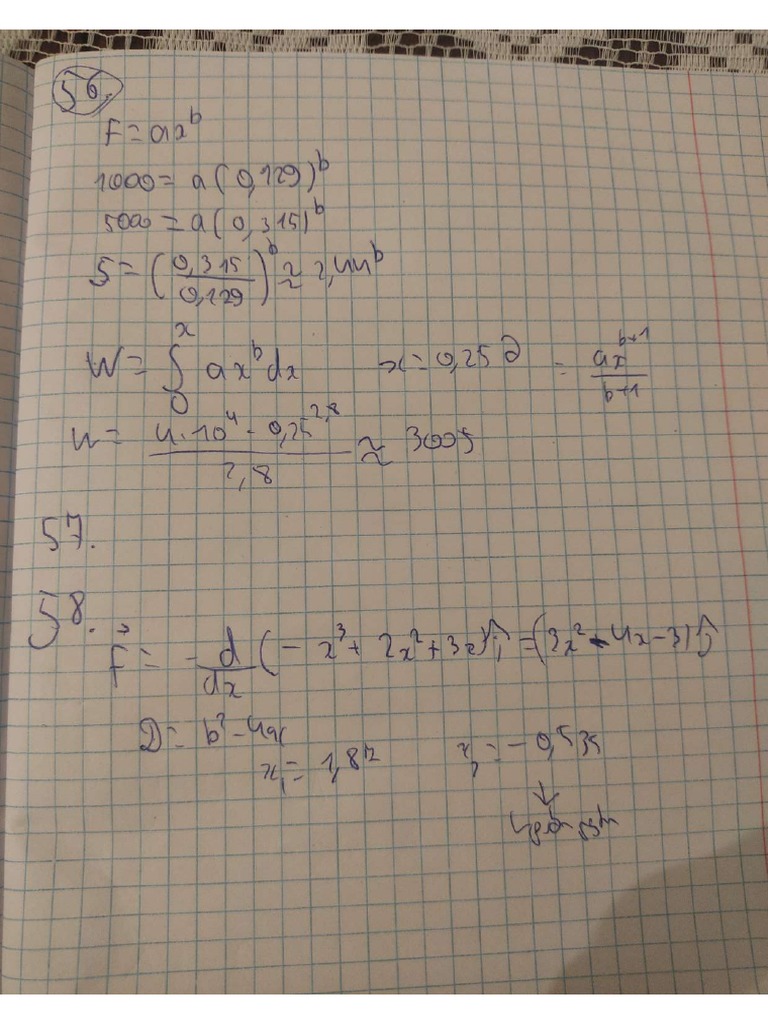 56.
F = ax^b
1000 = a(0,129)^b
5000 = a(0,315)^b
5 = (0,315/0,129)^b ≈ 2,44^b
W = ∫₀ˣ ax^b dx x = 0,25 მ = ax^(b+1)/(b+1)
W = 4·10^4 · 0,25^2,8 / 2,8 ≈ 300J
57.
58.
F⃗ = - d/dx (-x³ + 2x² + 3x) î = (3x² - 4x - 3) î
D = b² - 4ac
x₁ = 1,87 x₂ = -0,535
↓